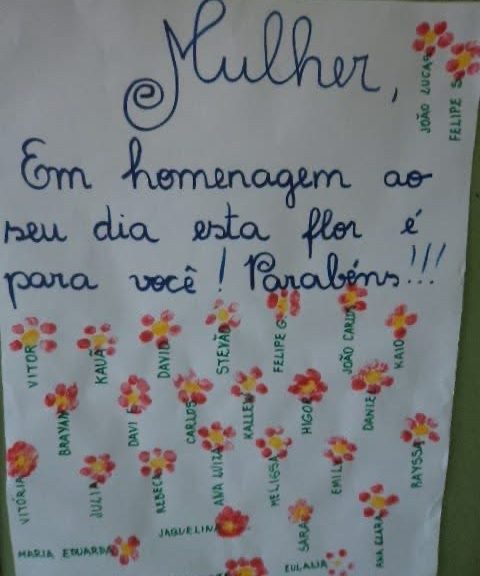 Mulher,
JOÃO LUCAS
FELIPE S.
Em homenagem ao
seu dia esta flor é
para você! Parabéns!!!
VITOR
KAUÃ
DAVID
STEVÃO
FELIPE G.
JOÃO CARLOS
KAIO
BRAYAN
DAVI F.
CARLOS
KALLEN
HIGOR
DANIEL
RAYSSA
VITÓRIA
JULIA
REBECA
ANA LUIZA
MELISSA
EMILY
MARIA EDUARDA
JAQUELINE
SARA
ANA CLARA
EULALIA